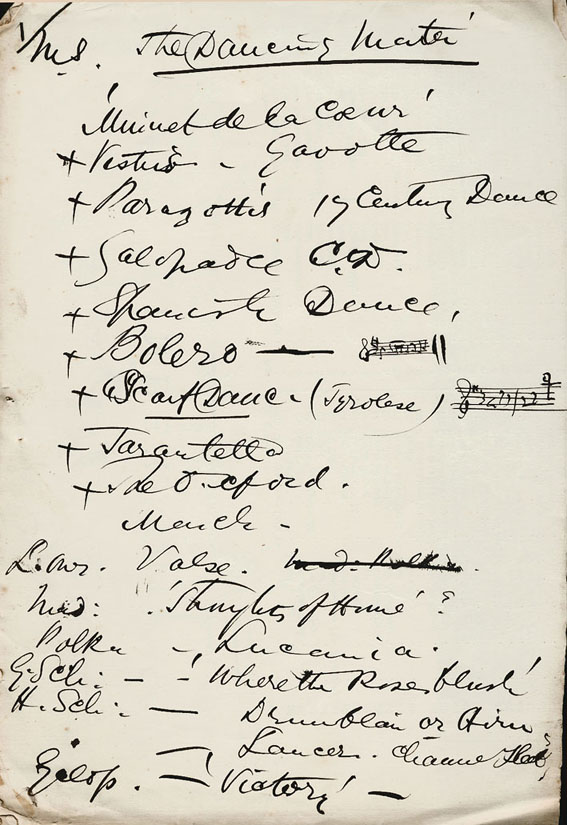 Ms. The Dancing Master
'Minuet de la Cœur'
+ Vestris - Gavotte
+ Paragottis 17 Century Dance
+ Galopade C.D.
+ Spanish Dance,
+ Bolero —
+ Scarf Dance - (Tyrolese)
+ Tarantella
+ The Oxford.
March -
Valse.
'Thoughts of Home' ?
Polka - Lucania.
G. Sch: - - 'Where the Roses blush'
H. Sch: — Drumblair or
Lancers.
Galop. — 'Victory' —